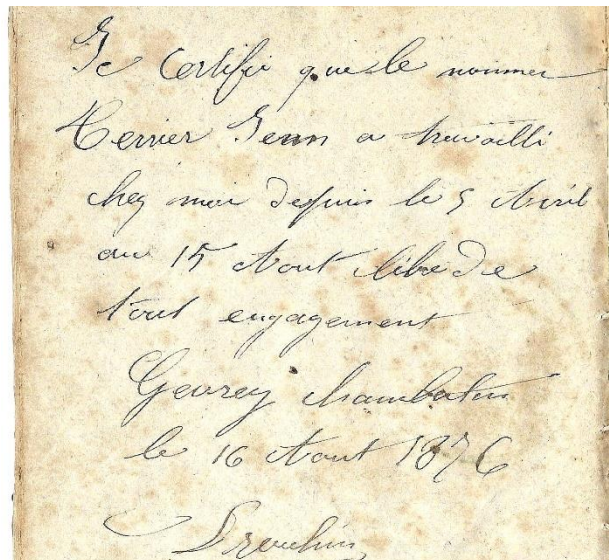 Je Certifie que le nommer
Terrier Jean a travailli
chez moi depuis le 5 Avril
au 15 Aout libre de
tout engagement
Gevrey Chambertin
le 16 Aout 1876
Drouhin